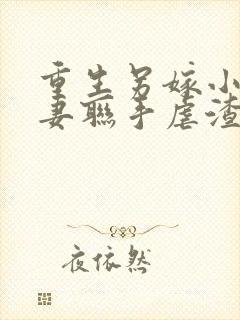 重生另嫁小
妻联手虐渣
夜依然